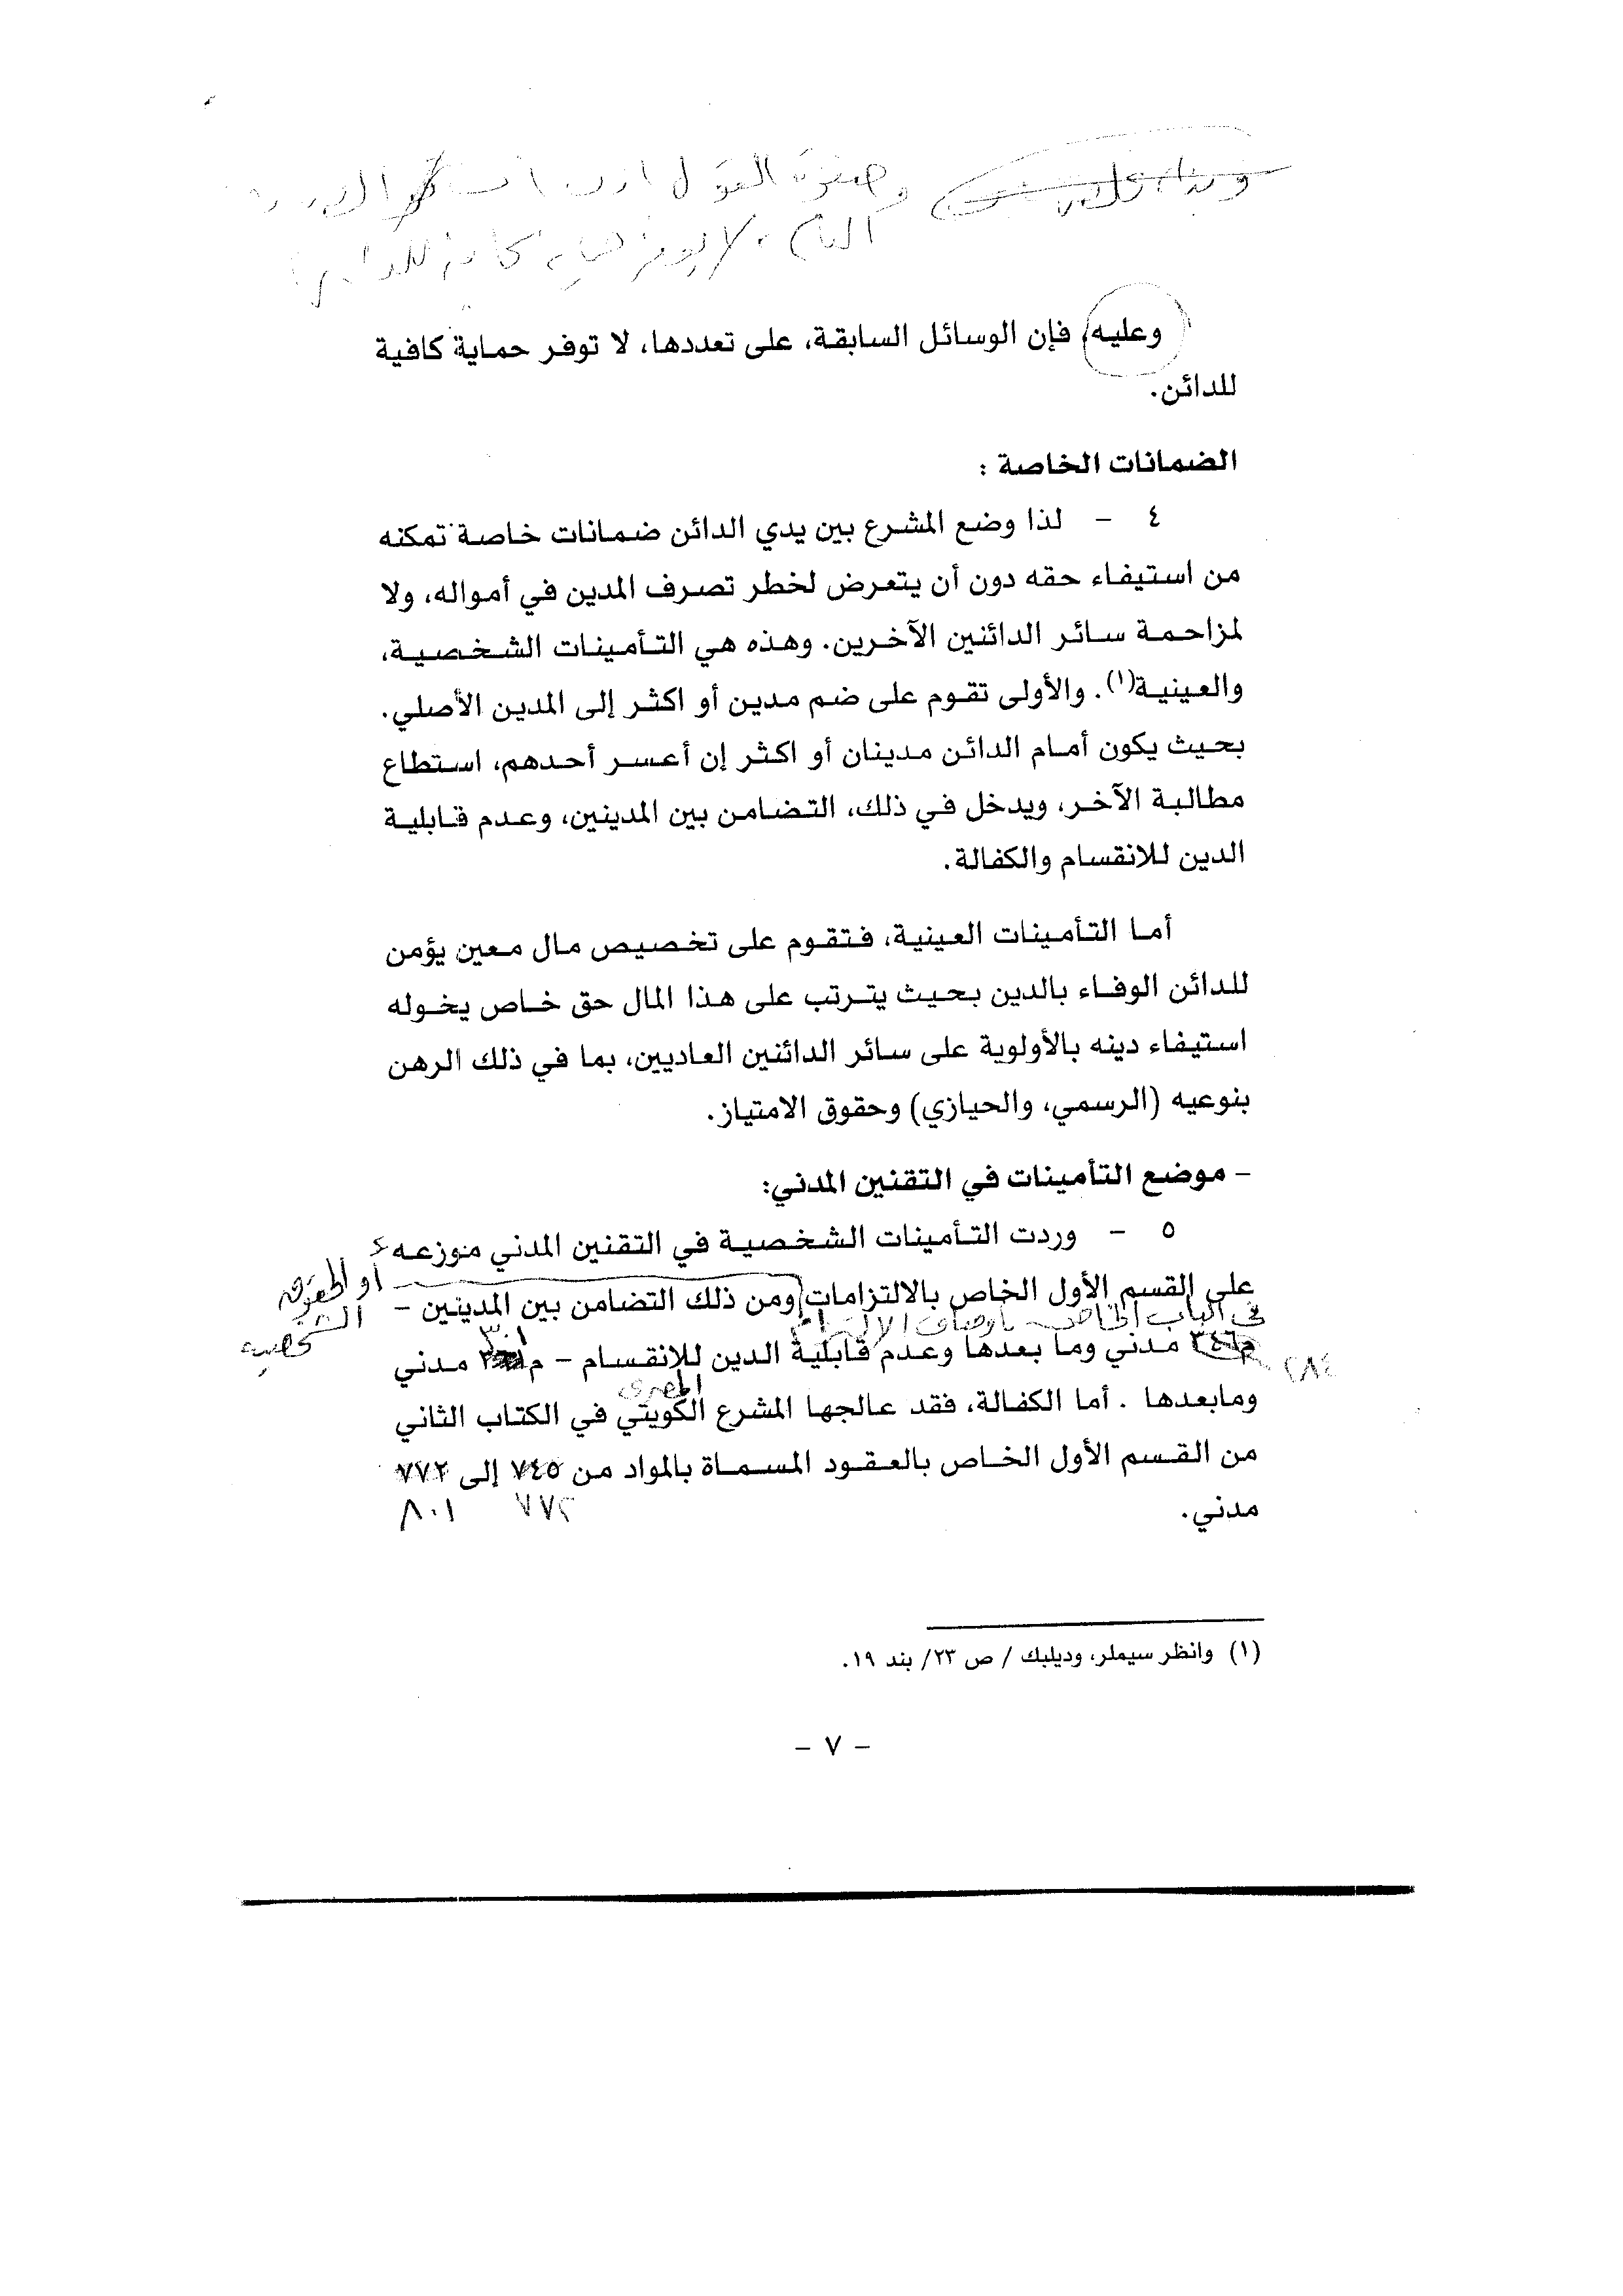 وصفوة القول
وعليه، فإن الوسائل السابقة، على تعددها، لا توفر حماية كافية
للدائن.
الضمانات الخاصة :
٤ - لذا وضع المشرع بين يدي الدائن ضمانات خاصة تمكنه
من استيفاء حقه دون أن يتعرض لخطر تصرف المدين في أمواله، ولا
لمزاحمة سائر الدائنين الآخرين. وهذه هي التأمينات الشخصية،
والعينية(١). والأولى تقوم على ضم مدين أو اكثر إلى المدين الأصلي.
بحيث يكون أمام الدائن مدينان أو اكثر إن أعسر أحدهم، استطاع
مطالبة الآخر، ويدخل في ذلك، التضامن بين المدينين، وعدم قابلية
الدين للانقسام والكفالة.
أما التأمينات العينية، فتقوم على تخصيص مال معين يؤمن
للدائن الوفاء بالدين بحيث يترتب على هذا المال حق خاص يخوله
استيفاء دينه بالأولوية على سائر الدائنين العاديين، بما في ذلك الرهن
بنوعيه (الرسمي، والحيازي) وحقوق الامتياز.
- موضع التأمينات في التقنين المدني:
٥ - وردت التأمينات الشخصية في التقنين المدني موزعه
على القسم الأول الخاص بالالتزامات ومن ذلك التضامن بين المدينين -
أو الحقوق
الشخصية
في الباب الخاص بأوصاف الالتزام
م٣٤٦ مدني وما بعدها وعدم قابلية الدين للانقسام - م مدني
٣٠١
٢٨٤
المصري
ومابعدها . أما الكفالة، فقد عالجها المشرع الكويتي في الكتاب الثاني
من القسم الأول الخاص بالعقود المسماة بالمواد من ٧٤٥ إلى ٧٧٢
مدني.
٧٧٢ ٨٠١
(١) وانظر سيملر، وديلبك / ص ٢٣/ بند ١٩.
- ٧ -